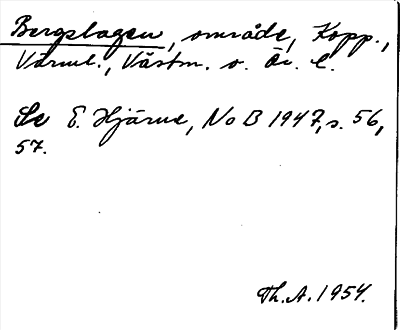 Bergslagen, område, Kopp.,
Värml., Västm. o. Ör. l.
Se E. Hjärne, No B 1947, s. 56,
57.
Th. A. 1954.